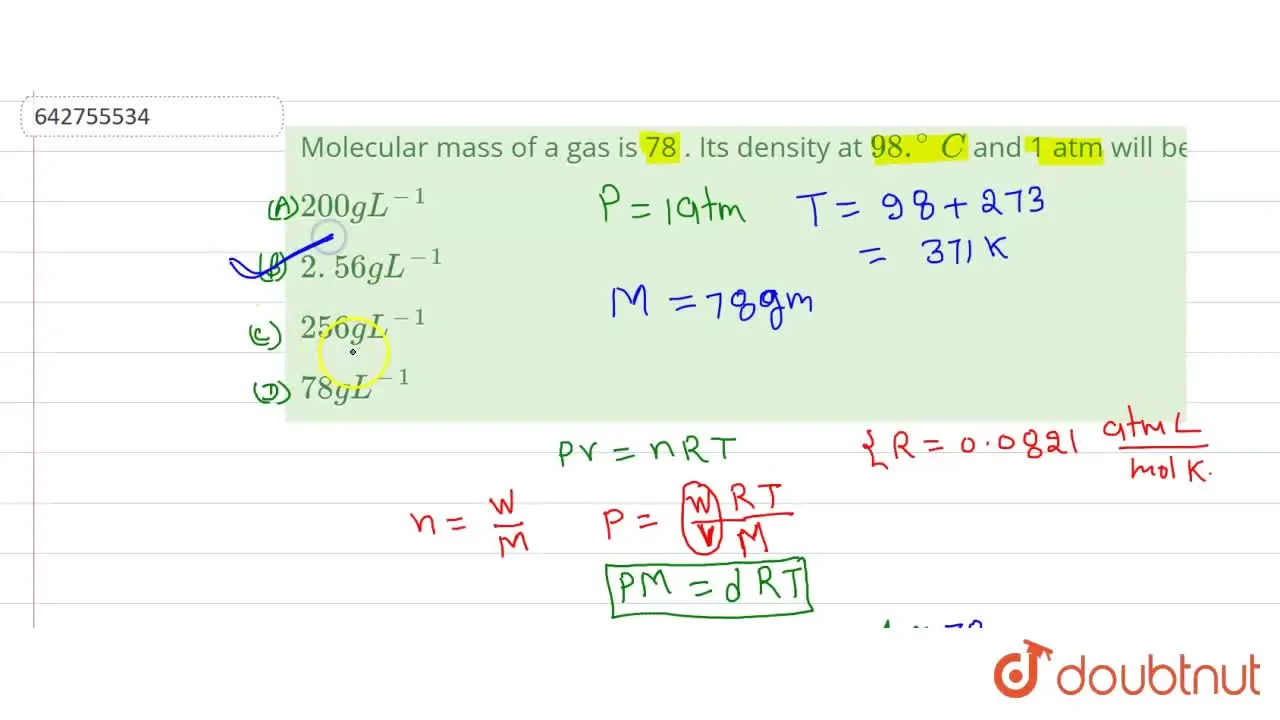 642755534
Molecular mass of a gas is 78 . Its density at 98.° C and 1 atm will be
(A) 200gL⁻¹
P = 1atm
T = 98 + 273
= 371 K
(B) 2.56gL⁻¹
M = 78gm
(C) 256gL⁻¹
(D) 78gL⁻¹
PV = nRT
{ R = 0.0821 atm L / mol K.
n = W / M
P = W RT / V M
PM = d RT
doubtnut